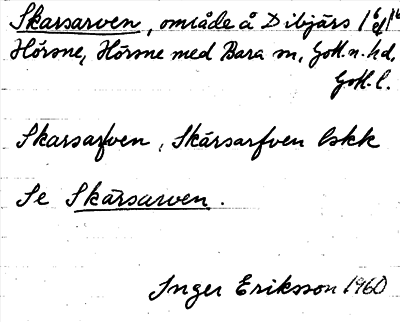 Skarsarven, område å Dibjärs 1
Hörsne, Hörsne med Bara sn, Gotl. n. hd,
Gotl. l.
Skarsarfven, Skärsarfven lskk
Se Skärsarven.
Inger Eriksson 1960